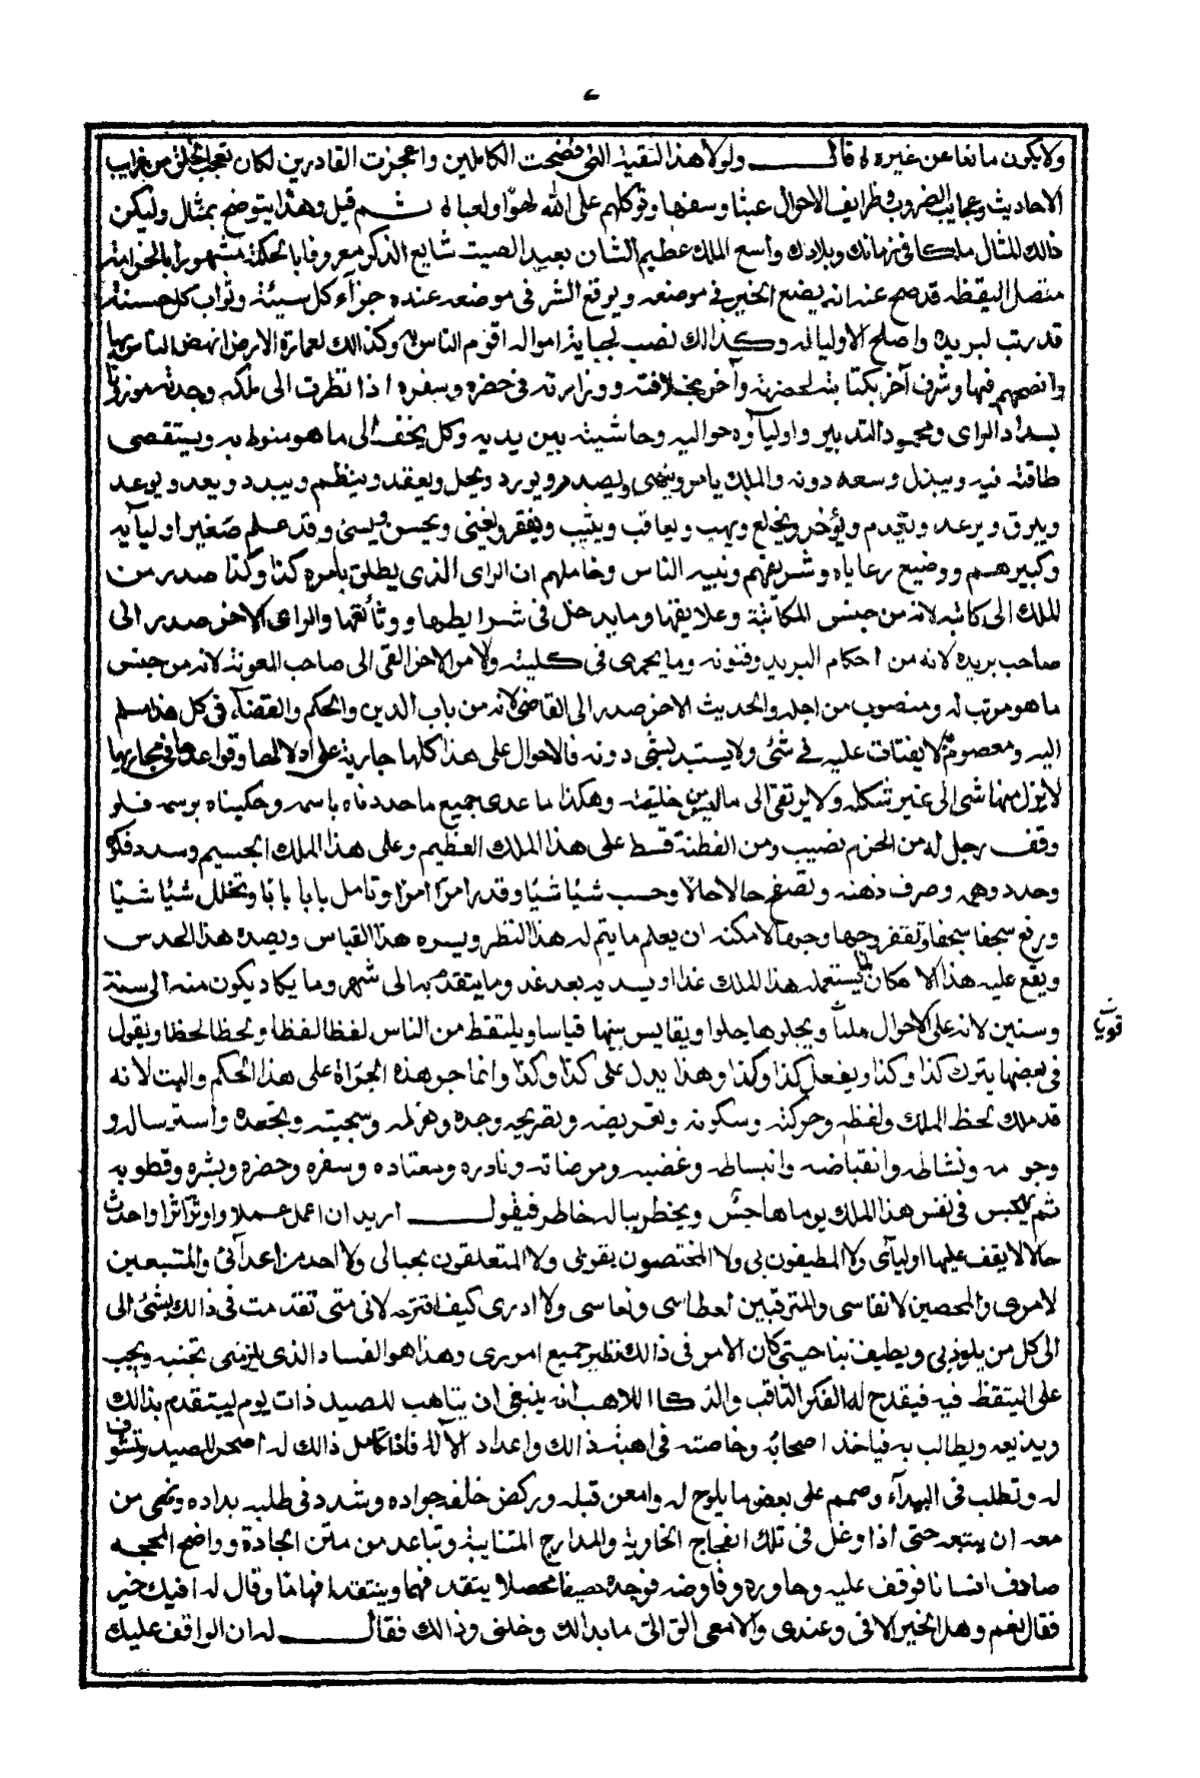 ولا يكون مانعا عن غيره له قال ولولا هذا البقية التي فضحت الكاملين واعجزت القادرين لكان تعجب الخلق من غرايب
الاحاديث وعجايب الضروب وظرايف الاحوال عبثا وسفها وتوكلهم على الله لهوا ولعبا له ثم قيل وهذا يتوضح بمثال وليكن
ذالك المثال ملكا في زمانك وبلادك واسع الملك عظيم الشان بعيد الصيت شايع الذكر معروفا بالحكمة مشهورا بالحزامة
متصل اليقظه قد صح عند انه يضع الخير في موضعه ويوقع الشر في موضعه عنده جزآء كل سيئة وثواب كل حسنة
قد رتب لبريده واصلح الاوليا له وكذالك نصب لجباية امواله اقوم الناس به وكذالك لعمارة الارض انهض الناس بها
وانصحهم فيها وشرف آخر بكتابته لحضرته وآخر بخلافته ووزارته في حضره وسفره اذا نظرت الى ملكه وجدته موزونا
بسداد الراى ومحمود التدبير واوليآوه حواليه وحاشيته بين يديه وكل يخف الى ما هو منوط به ويستقصى
طاقته فيه ويبذل وسعه دونه والملك يامر وينهى ويصدر ويورد ويحل ويعقد وينظم ويبدد ويعد ويوعد
ويبرق ويرعد ويقدم ويؤخر ويخلع ويهب ويعاقب ويثيب ويفقر ويغنى ويحسن ويسئ وقد علم صغير اوليآيه
وكبيرهم ووضيع رعاياه وشريفهم ونبيه الناس وخاملهم ان الراى الذى يطلق بامره كذا وكذا صدر من
الملك الى كاتبه لانه من جنس المكاتبة وعلايقها وما يدخل في شرايطها ووثائقها والراى الاخر صدر الى
صاحب بريده لانه من احكام البريد وفنونه وما يجرى في كليته والامر الاخر القى الى صاحب المعونة لانه من جنس
ما هو مرتب له ومنصوب من اجله والحديث الاخر صدر الى القاضى لانه من باب الدين والحكم والقضآء في كل هذا مسلم
اليه ومعصوم به لا يفتات عليه في شئ ولا يستبد بشئ دونه فالاحوال على هذا كلها جارية على اذلالها وقواعدها في مجاريها
لا يزل منها شئ الى غير شكله ولا يرتقى الى ما ليس من خليقته وهكذا ما عدى جميع ما حددناه باسمه وحكيناه بوسمه فلو
وقف رجل له من الحزم نصيب ومن الفطنة قسط على هذا الملك العظيم وعلى هذا الملك الجسيم وسدد فكره
وحدد وهمه وصرف ذهنه وتصفح حالا حالا وحسب شيئا شيئا وقدر امرا امرا وتامل بابا بابا وتخلل شيئا شيئا
ورفع سجفا سجفا وتقفر وجها وجها لامكنه ان يعلم ما يتم له هذا النظر ويسره هذا القياس ويصده هذا الحدس
ويقع عليه هذا الامكان ما يستعمله هذا الملك غدا ويسديه بعد غد وما يتقدم به الى شهر وما يكاد يكون منه الى سنة
وسنين لانه على الاحوال ملئا ويجلوها جلوا ويقايس بينها قياسا ويلتقط من الناس لفظا لفظا ولحظا لحظا ويقول
قويات
في بعضها يترك كذا وكذا ويفعل كذا وكذا وهذا يدل على كذا وكذا وانما جر هذه الجرأة على هذا الحكم والبت لانه
قد ملك لحظ الملك ولفظه وحركته وسكونه وتعريضه وتصريحه وجده وهزله وسجيته وتجعده واسترساله و
وجومه ونشاطه وانقباضه وانبساطه وغضبه ومرضاته ونادره ومعتاده وسفره وحضره وبشره وقطوبه
ثم يهجس في نفس هذا الملك يوما هاجس ويخطر بباله خاطر فيقول اريد ان اعمل عملا واوثر اثرا واحدث
حالا لا يقف عليها اوليآئى ولا المطيفون بى ولا المختصون بقربى ولا المتعلقون بحبالى ولا احد من اعدآئى والمتتبعين
لامرى والمحصين لانفاسى والمترقبين لعطاسى ونعاسى ولا ادرى كيف اقترحه لانى متى تقدمت في ذالك بشئ الى
الى كل من يلوذ بى ويطيف بناحيتى كان الامر فى ذالك نظير جميع امورى وهذا هو الفساد الذى يلزمنى تجنبه ويجب
على التيقظ فيه فيقدح له الفكر الثاقب والذكا اللاهب انه ينبغى ان يتاهب للصيد ذات يوم فيتقدم بذالك
ويذيعه ويطالب به فياخذ اصحابه وخاصته في اهبة ذالك واعداد الآلة فاذا تكامل ذالك له اصحر للصيد وتشوف
له وتطلب في البيدآء وصمم على بعض ما يلوح له وامعن قبله وركض خلفه جواده وشدد فى طلبه بداده ونهى من
معه ان يتبعه حتى اذا وغل في تلك الفجاج الخاوية والمدارج المتنايية وتباعد من متن الجادة وواضح المحجه
صادف انسانا فوقف عليه وحاوره وفاوضه فوجده حصيفا محصلا يتقد فهما وينتقد افهاما وقال له افيك خير
فقال نعم وهل الخير الا فى وعندى والا معى الق الى ما بدالك وخلنى وذالك فقال له ان الواقف عليك